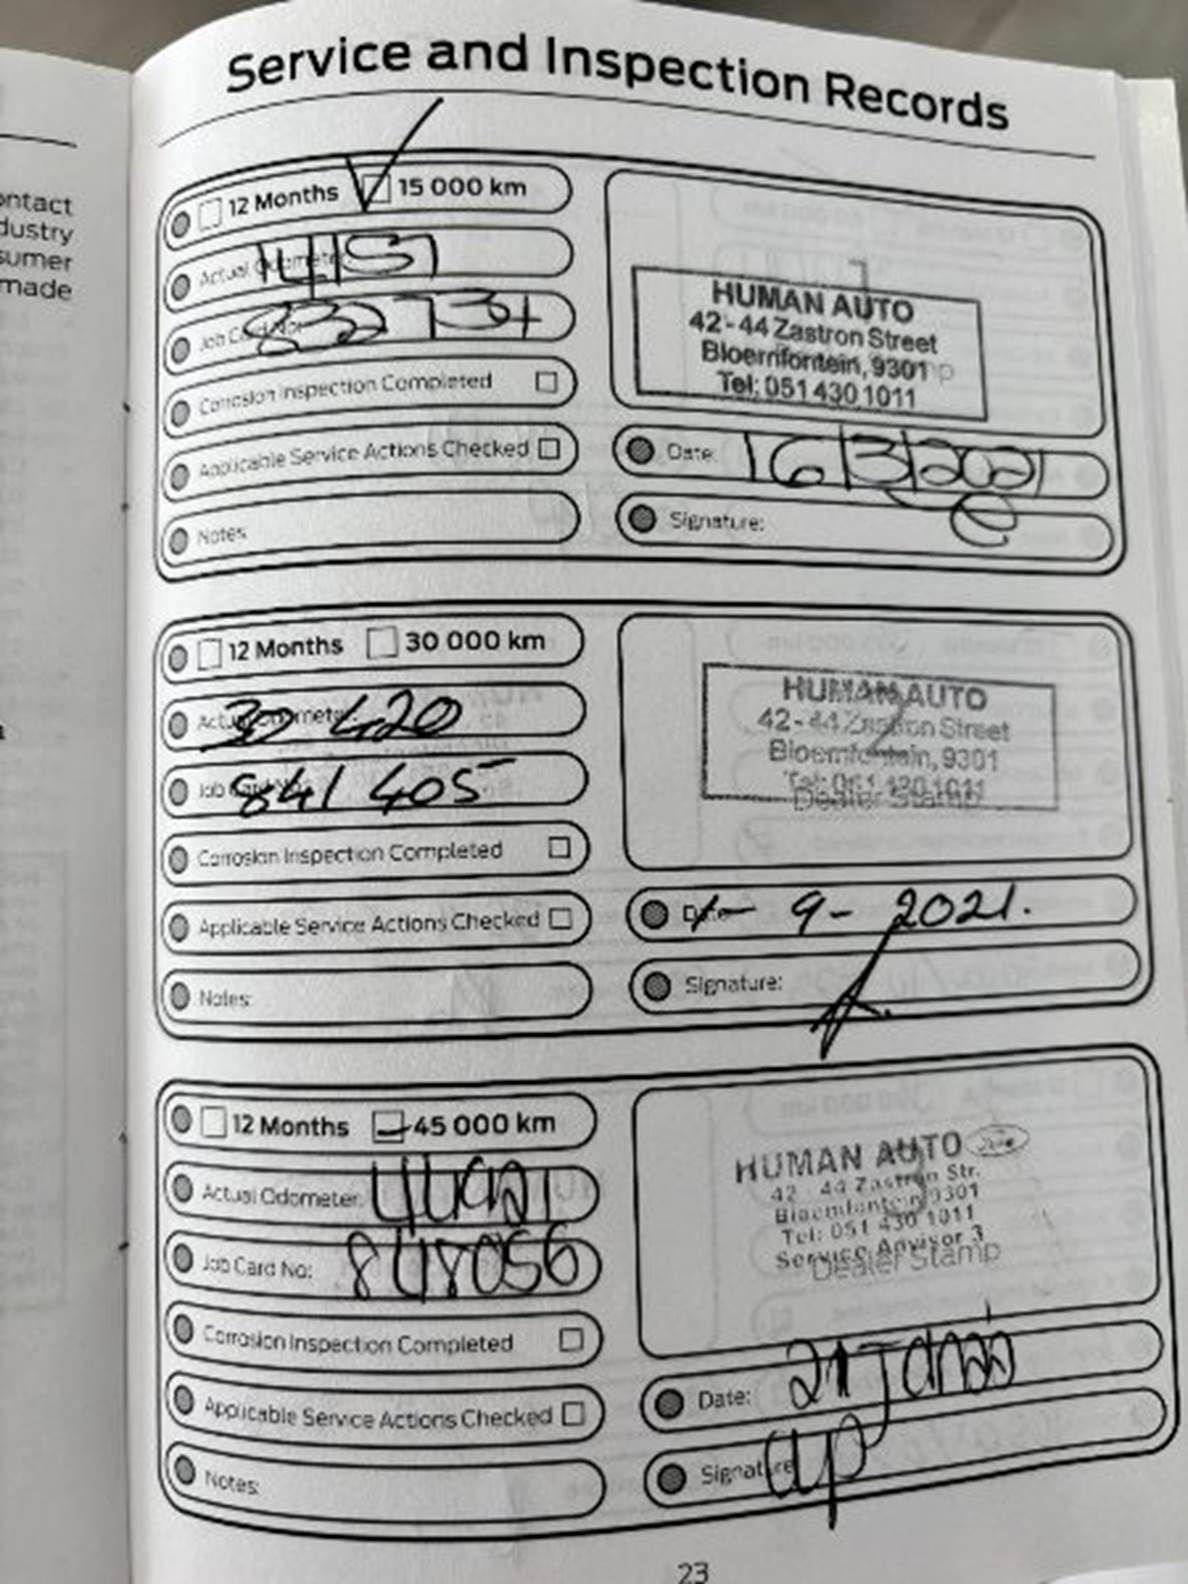 ontact
dustry
sumer
made
Service and Inspection Records
12 Months 15 000 km
Actual Odometer:
Job Card No:
832734
Corrosion Inspection Completed
Applicable Service Actions Checked
Notes:
HUMAN AUTO
42-44 Zastron Street
Bloemfontein, 9301
Tel: 051 430 1011
Date: 16/3/2021
Signature:
12 Months 30 000 km
Actual Odometer: 30 420
Job Card No: 841 405
Corrosion Inspection Completed
Applicable Service Actions Checked
Notes:
HUMAN AUTO
42-44 Zastron Street
Bloemfontein, 9301
Tel: 051 430 1011
Dealer Stamp
Date: 9-2021.
Signature:
12 Months 45 000 km
Actual Odometer:
Job Card No: 848056
Corrosion Inspection Completed
Applicable Service Actions Checked
Notes:
HUMAN AUTO
42-44 Zastron Str.
Bloemfontein 9301
Tel: 051 430 1011
Service Advisor 3
Dealer Stamp
Date:
Signature:
23